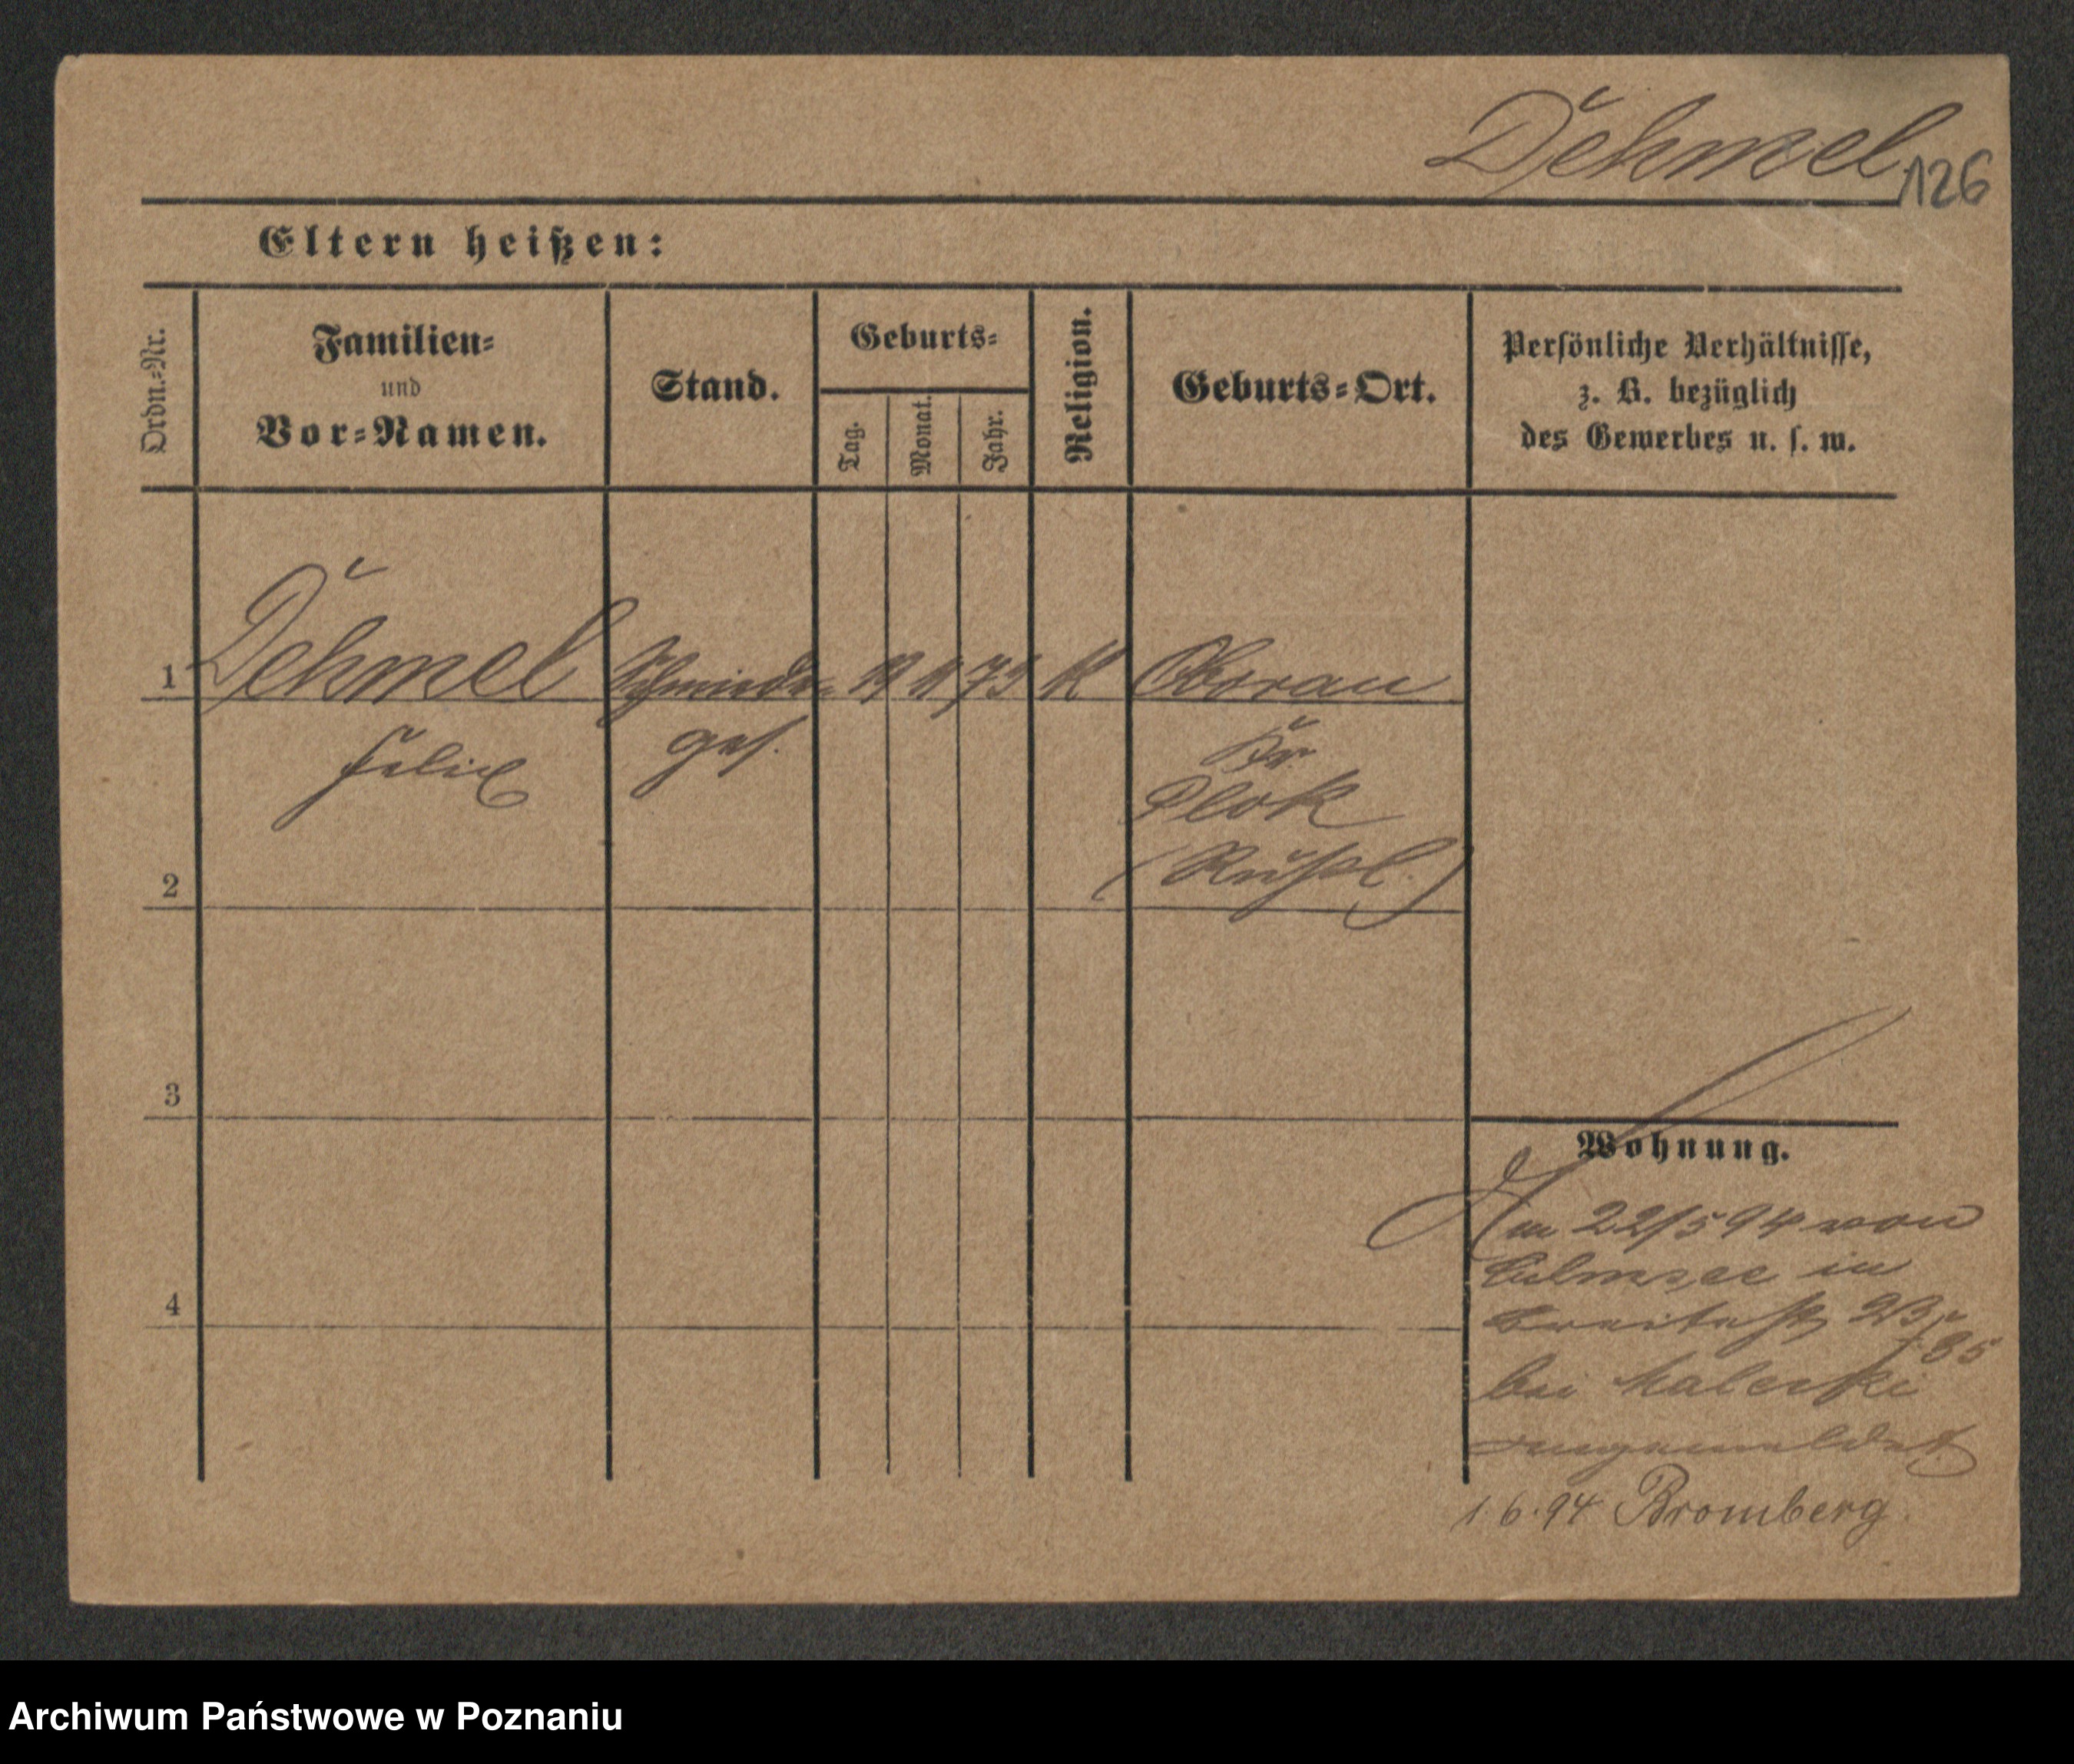 Dehmel
126
Eltern heißen:
Ordn.-Nr.
Familien-
und
Vor-Namen.
Stand.
Geburts-
Tag.
Monat.
Jahr.
Religion.
Geburts-Ort.
Persönliche Verhältnisse,
z. B. bezüglich
des Gewerbes u. s. w.
1
Dehmel
Schmiede-
19 11 73
K
Oborau
Felix
ges.
Kr.
Plok
(Rußl.)
2
3
4
Wohnung.
Am 22/5 94 von
Culmsee in
Breitestr 23
bei
angemeldet
1.6.94 Bromberg.
Archiwum Państwowe w Poznaniu